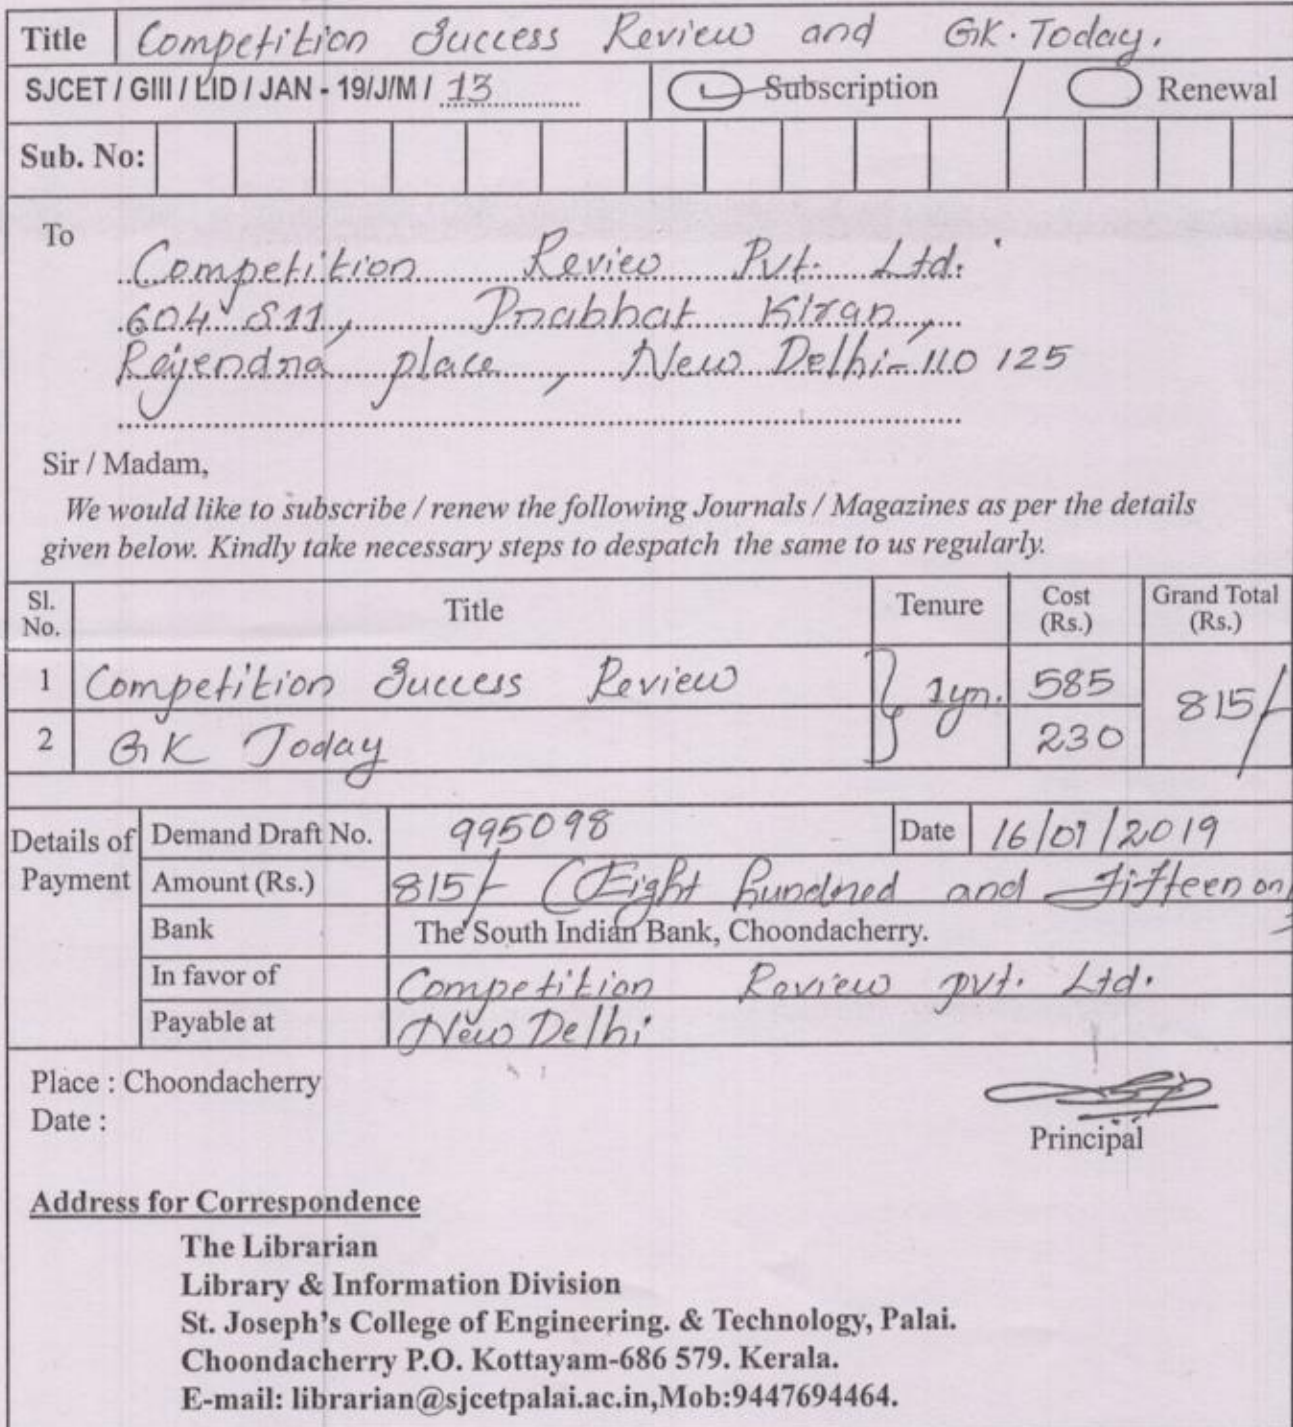 Title Competition Success Review and GK. Today.
SJCET / GIII / LID / JAN - 19/J/M / 13 Subscription / Renewal
Sub. No:
To
Competition Review Pvt. Ltd.
604 811, Prabhat Kiran,
Rajendra place, New Delhi-110 125
Sir / Madam,
We would like to subscribe / renew the following Journals / Magazines as per the details
given below. Kindly take necessary steps to despatch the same to us regularly.
Sl. No. Title Tenure Cost (Rs.) Grand Total (Rs.)
1 Competition Success Review 1yr. 585 815/-
2 GK Today 230
Details of Payment
Demand Draft No. 995098 Date 16/01/2019
Amount (Rs.) 815/- (Eight hundred and fifteen on
Bank The South Indian Bank, Choondacherry.
In favor of Competition Review pvt. Ltd.
Payable at New Delhi
Place : Choondacherry
Date :
Principal
Address for Correspondence
The Librarian
Library & Information Division
St. Joseph's College of Engineering. & Technology, Palai.
Choondacherry P.O. Kottayam-686 579. Kerala.
E-mail: librarian@sjcetpalai.ac.in,Mob:9447694464.